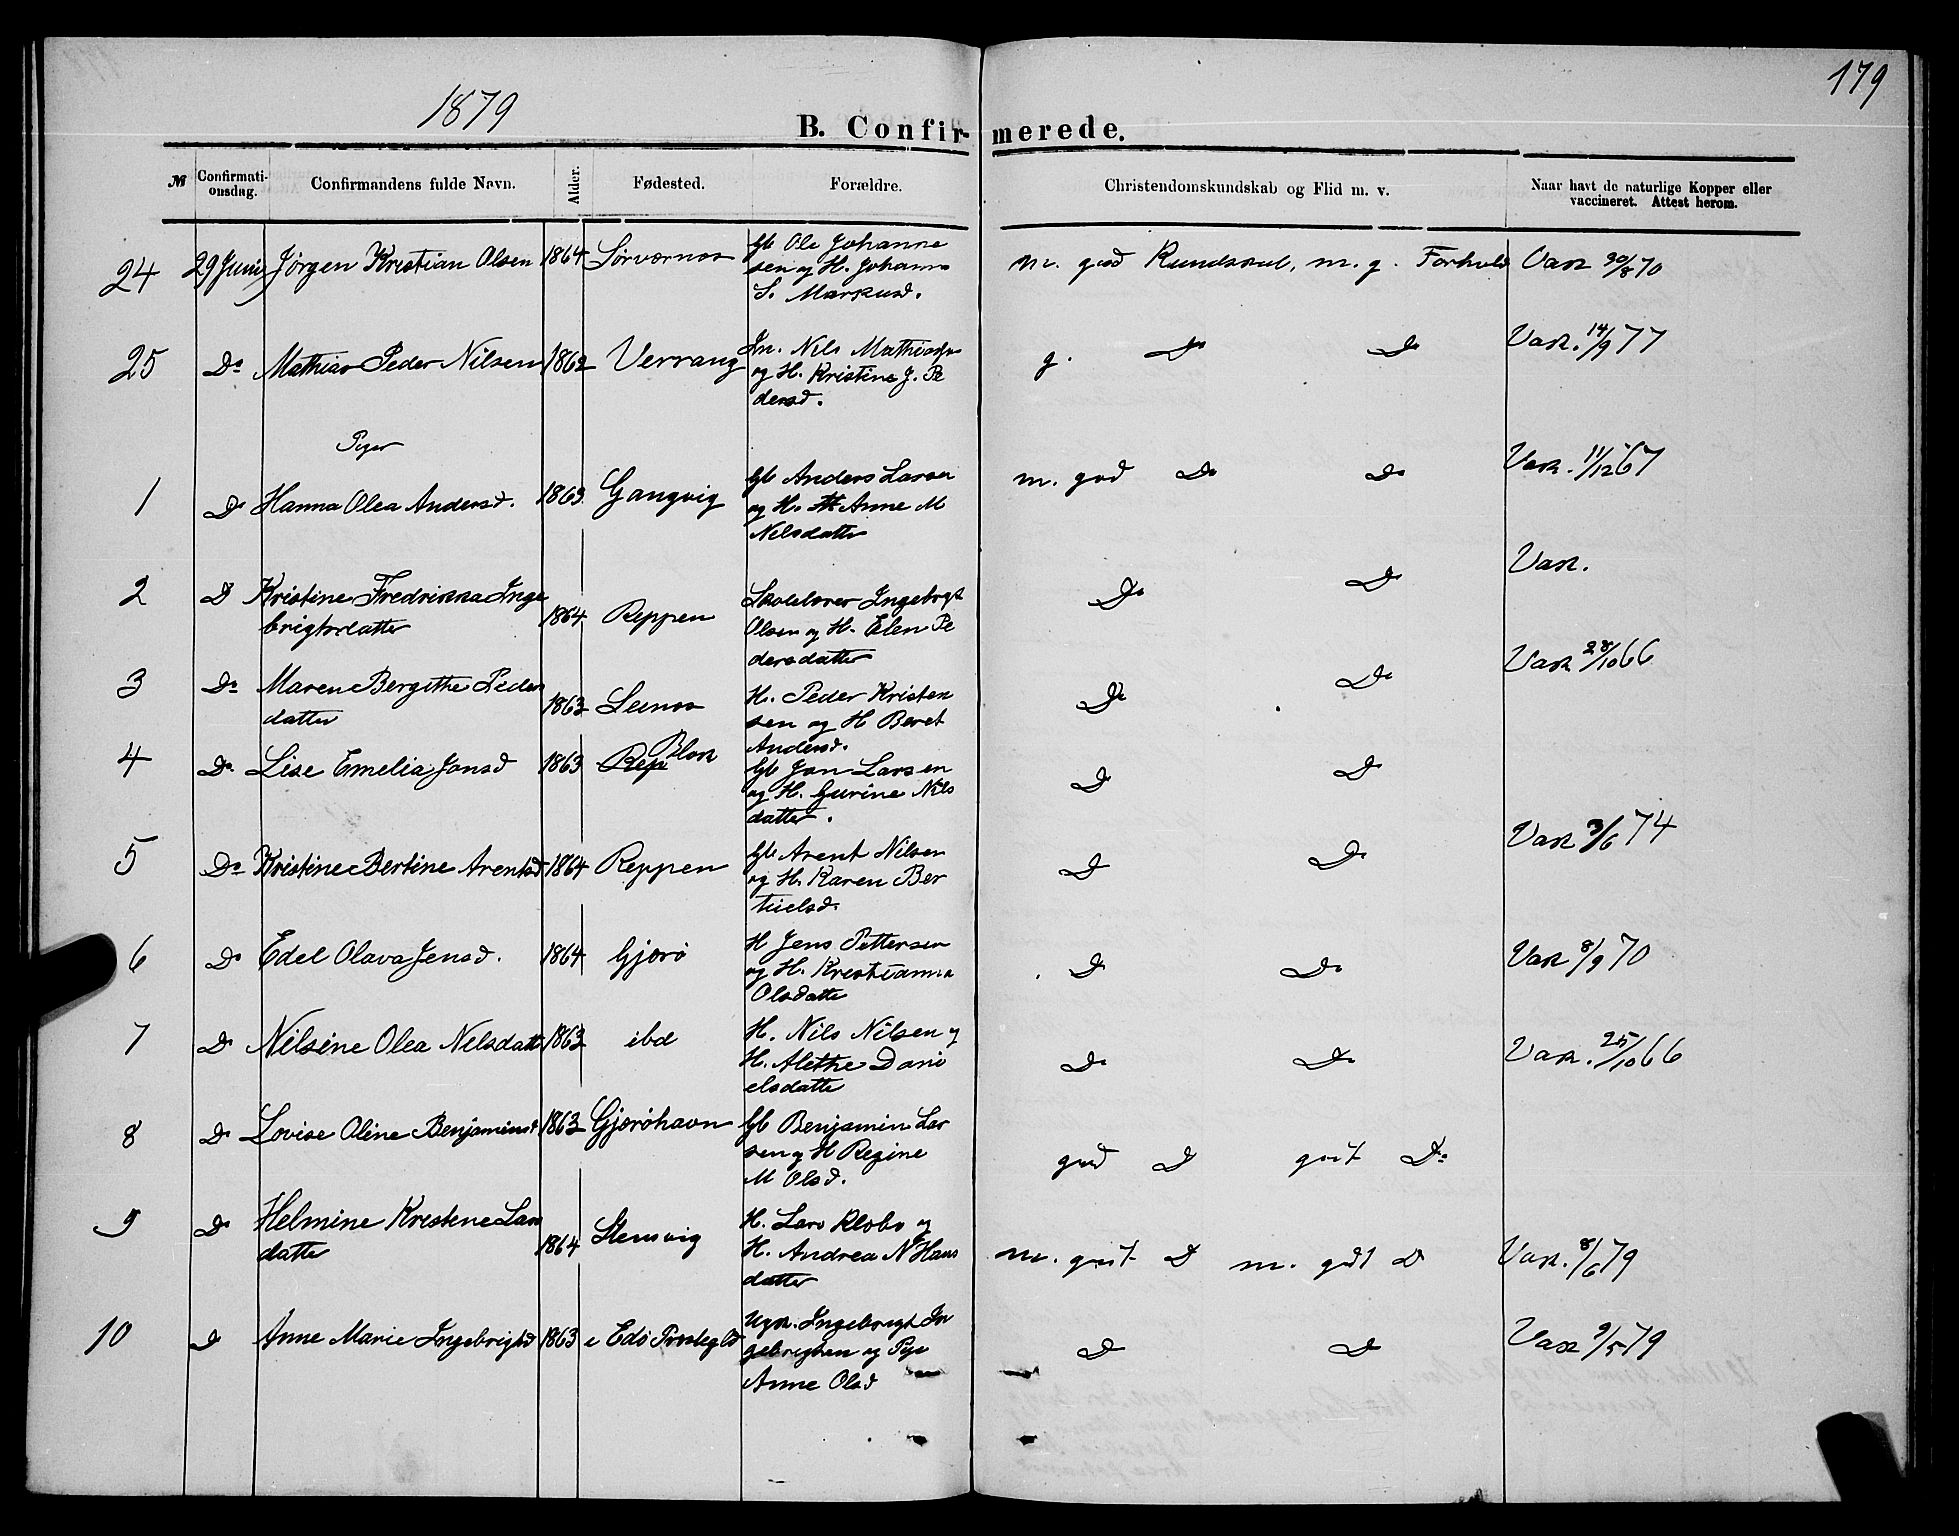 179
1879
B. Confirmerede.
№ Confirmationsdag. Confirmandens fulde Navn. Alder. Fødested. Forældre. Christendomskundskab og Flid m. v. Naar havt de naturlige Kopper eller vaccineret. Attest herom.
24 29 Juni Jørgen Kristian Olsen 1864 Sørværnes Gb Ole Johanne
sen og H. Johanna
S. Markusd.
m. god Kundskab, m. g. Forhold Vax 30/8 70
25 Do Mathias Peder Nilsen 1862 Verrang In. Nils Mathiass
og H. Kristine J. Pe
dersd.
g. Do Do Vax. 14/9 77
Piger
1 Do Hanna Olea Andersd. 1863. Gangvig Gb Anders Larsen
og H. Anne M
Nilsdatter
m. god Do Do Vax. 11/12 67
2 D Kristine Fredrikka Inge
brigtsdatter 1864 Reppen Skolelærer Ingebrigt
Olsen og H. Elen Pe
dersdatter
Do Do Vax.
3 Do Maren Bergithe Peders
datter 1863 H. Peder Kristen
sen og H Beret
Andersd.
Do Do Vax 28/10 66
4 Do Lise Emelia Jonsd 1863 Rep Blok Gb Jon Larsen
og H. Gurine Nils
datter.
D Do
5 Do Kristine Bertine Arentsd 1864 Reppen Gb Arent Nilsen
og H. Karen Ber
tielsd.
D Do Vax 3/6 74
6 Do Edel Olava Jensd. 1864 Gjærø H Jens Pettersen
og H. Kristianna
Olsdatter
D Do Vax 8/9 70
7 Do Nilsine Olea Nilsdatt 1863 ibd H. Nils Nilsen og
H. Alethe Dani
elsdatter
Do Do Vax. 25/10 66
8 Do Lovise Oline Benjaminsd 1863 Gjærøhavn Gb Benjamin Lar
sen og H Regine
M Olsd.
god D godt Do
9 Do Helmine Kristine Lars
datter 1864 Stensvig H. Lars Klobo og
H. Andrea N Hans
datter
m. godt D m. godt D Vax. 8/6 79
10 D Anne Marie Ingebrigtsd 1863 i Edø Prestegld Ugk. Ingebrigt In
gebrigtsen og Pige
Anne Olsd
D D Vax 9/5 79